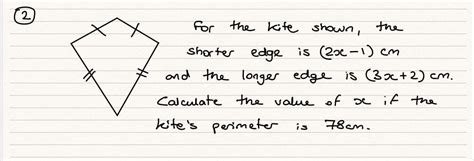 2
For the kite shown, the
shorter edge is (2x-1) cm
and the longer edge is (3x+2) cm.
Calculate the value of x if the
kite's perimeter is 78cm.